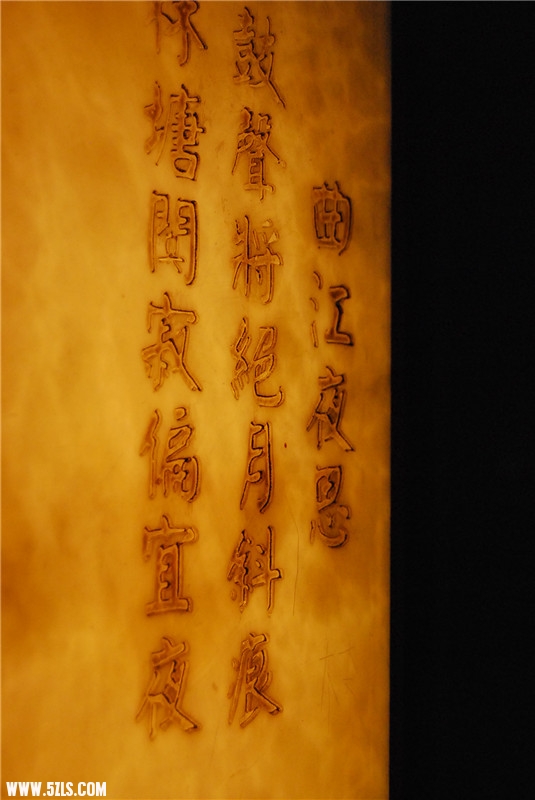 曲江夜思
鼓聲將絕月斜痕
林塘闃寂偏宜夜
WWW.5ZLS.COM